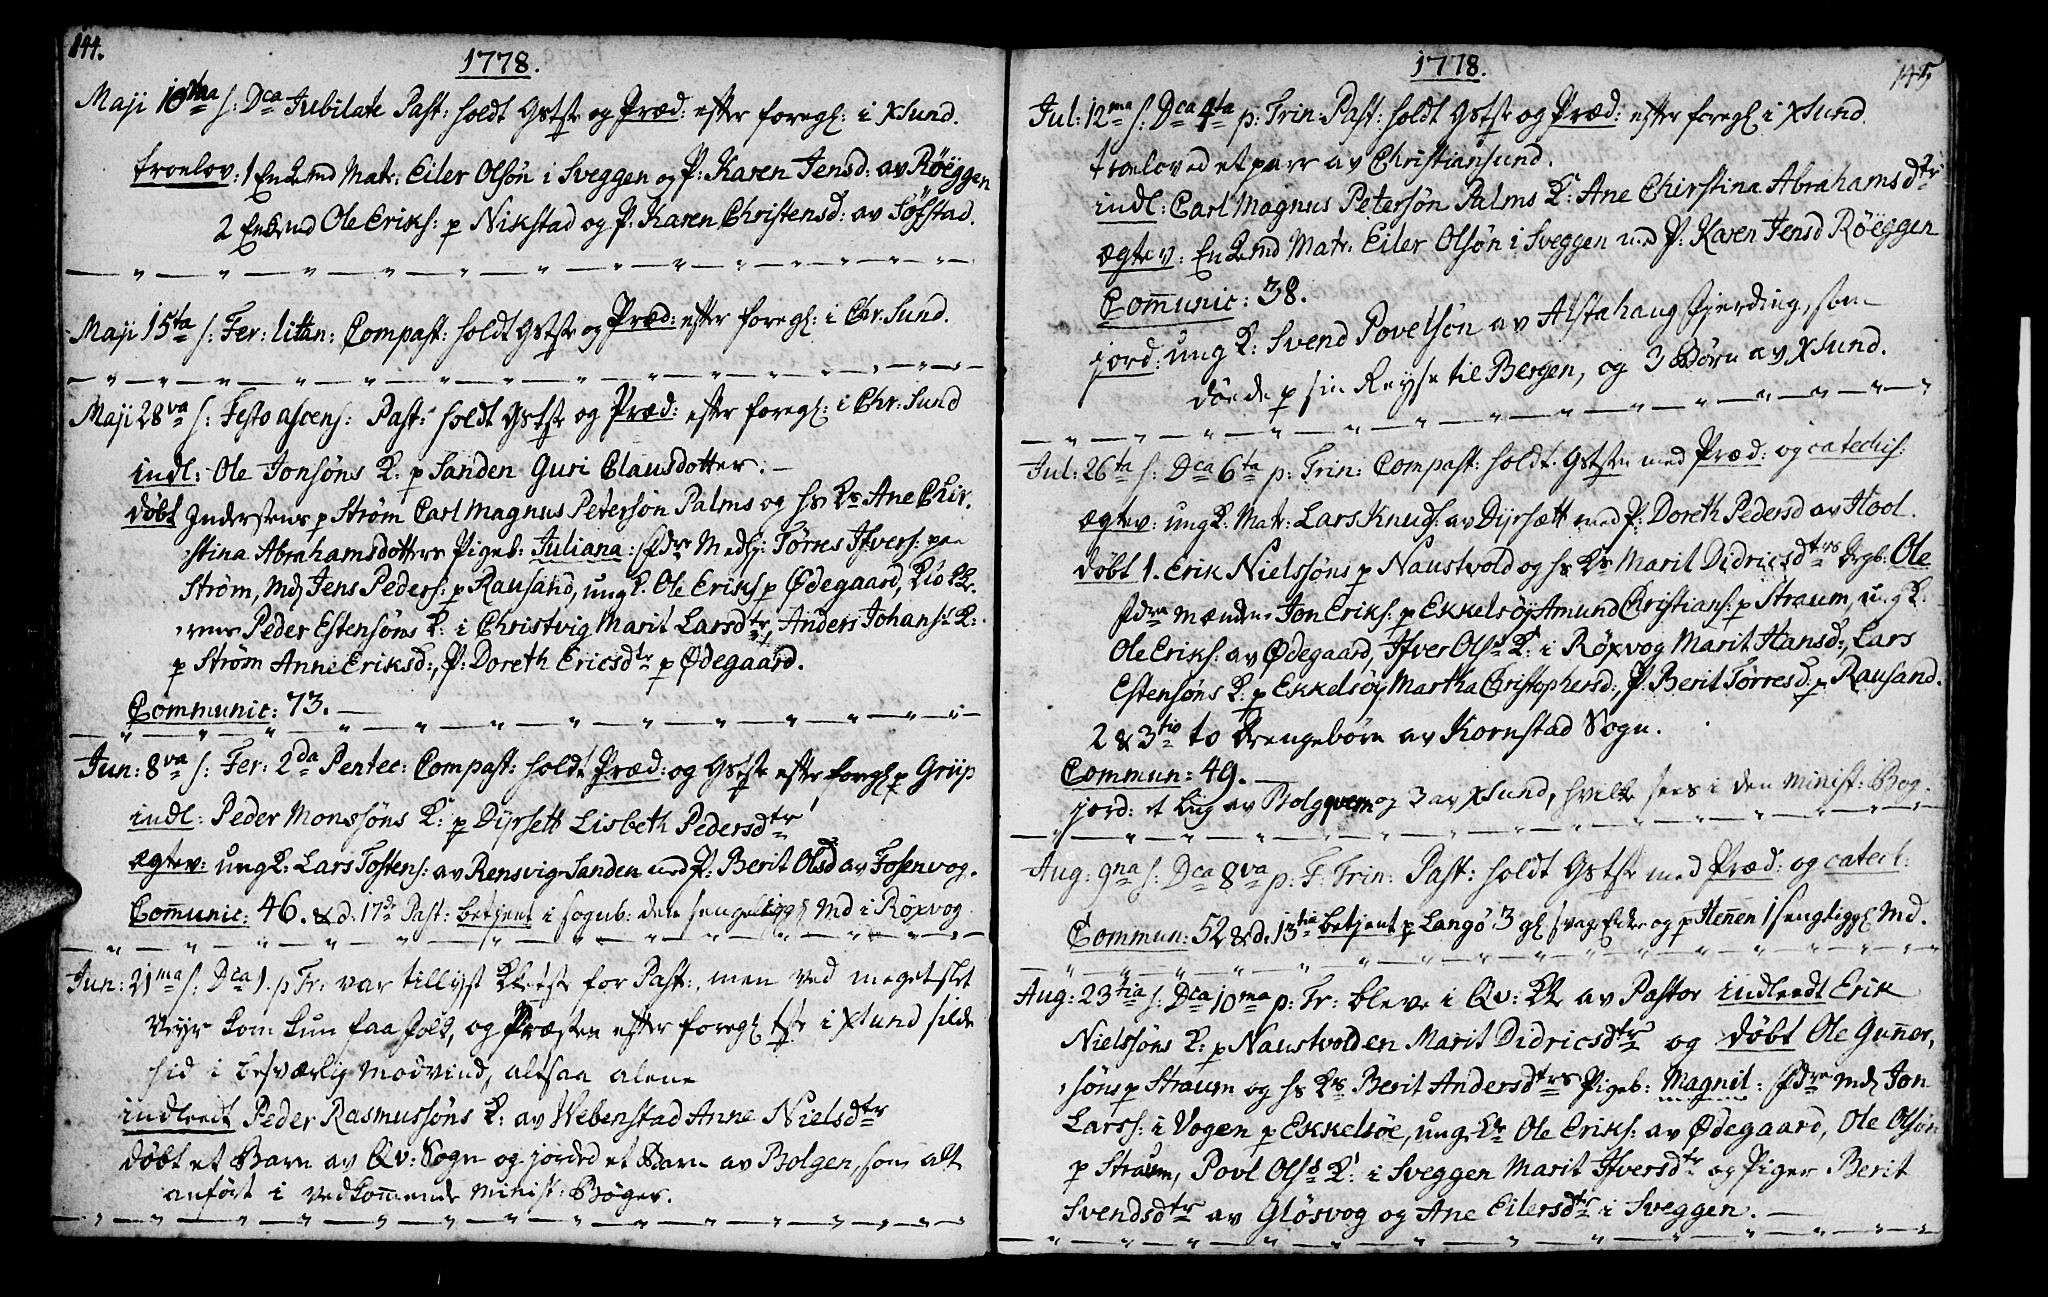 144.
1778.
Maji 10ma s: Dca Jubilate Past: holdt Gstste og Præd: efter foregl: i XSund.
trolov: 1 Enkmd Matr: Eiler Olsøn i Sveggen og P: Karen Jensd: av Røeggen
2 Enkmd Ole Eriks: p Nikstad og P: Karen Christensd: av Søfstad.
Maji 15ta s: Fer: littan: Compast: holdt Gstste og Præd: efter foregl: i Chr. Sund.
Maji 28va s: Festo ascens: Past: holdt Gstste og Præd: efter foregl: i Chr: Sund
indl: Ole Jonsøns K: p Sanden Guri Clausdotter.
døbt Indersens p Strøm Carl Magnus Petersøn Palms og hs Ks Ane Chir-
stina Abrahamsdotters Pigeb: Juliana: fdre Medhj: Tørres Ifvers: paa
Strøm, Md Jens Peders: p Rausand, ung K. Ole Eriks p Ødegaard,
Peder Estensøns K: i Christvig Marit Larsdtr, Anders Johans: K:
p Strøm Anne Eriksd:, P: Doreth Ericsdtr p Ødegaard.
Communic: 73.
Jun: 8va s: Fer: 2da Pentec: Compast: holdt Præd: og Gstste efter foregl p Griip
indl: Peder Monssøns K: p Dyrsett Lisbeth Pedersdtr
ægtev: ung K: Lars Tostens: av Rensvig Sanden med P: Berit Olsd av Fosenvog.
Communic: 46. & d. 17de Past: betjent i sognb: den sengeliggl Md i Røxvog
Jun: 21ma s: Dca 1. p Tr: var tillyst for Past:, men ved meget slet
Veyr kom kun faa folk, og Præsten efter foregl i XSund silde
hid i besværlig Modvind, altsaa alene
indleedt Peder Rasmussøns K: av Webenstad Anne Nielsdtr
døbt et Barn av Qv: Sogn og jorded et Barn av Bolgen, som alt
anført i vedkommende minist: Bøger.
145
1778.
Jul: 12ma s: Dca 4ta p: Trin: Past: holdt Gstste og Præd: efter foregl i XSund.
troloved et parr av Christiansund.
indl: Carl Magnus Petersøn Palms K: Ane Chirstina Abrahamsdtr
ægtev: Enkmd Matr: Eiler Olsøn i Sveggen med P: Karen Jensd Røeggen
Communic: 38.
jord: ung K: Svend Povelsøn av Alstahaug Fjerding, som
døede p sin Reyse til Bergen, og 3 Børn av XSund.
Jul: 26ta s: Dca 6ta p: Trin: Compast: holdt Gstste med Præd: og catechis:
ægtev: ung K: Matr: Lars Knuds: av Dyrsætt med P: Doreth Pedersd av Hool.
døbt 1. Erik Nielssøns p Naustvold og hs Ks Marit Didricsdtrs Drgb: Ole
fdre mændene Jon Eriks: p Ekkelsøy Amund Christians: p Straum, ung K:
Ole Eriks: av Ødegaard, Ifver Ols: K: i Røxvog Marit Hansd:, Lars
Estensøns K: p Ekkelsøy Martha Christophersd:, P: Berit Tørresd: p Rausand.
2 & 3tio to Drengebørn av Kornstad Sogn.
Commun: 49.
jord: et Lig av Bolgqvern og 3 av XSund, hvilke sees i den minist: Bog.
Aug: 9na s: Dca 8va p: F: Trin: Past: holdt Gstste med Præd: og catech:
Commun: 52 & d. 13tia betjent p Langø 3 gl svage Folk og p Hennen 1 sengliggl Md.
Aug: 23tia s: Dca 10ma p: Tr: bleve i Qv: KK av Pastor indleedt Erik
Nielssøns K: p Naustvolden Marit Didricsdtr og døbt Ole Gunner-
søns p Straum og hs Ks Berit Andersdtrs Pigeb: Magnil: fdre md Jon
Larss: i Vogen p Ekkelsøe, ung K Ole Eriks: av Ødegaard, Ole Olsøn
p Straum, Povl Ols: K: i Sveggen Marit Ifversdtr og Piger Berit
Svendsdtr av Gløsvog og Ane Eilersdtr i Sveggen.